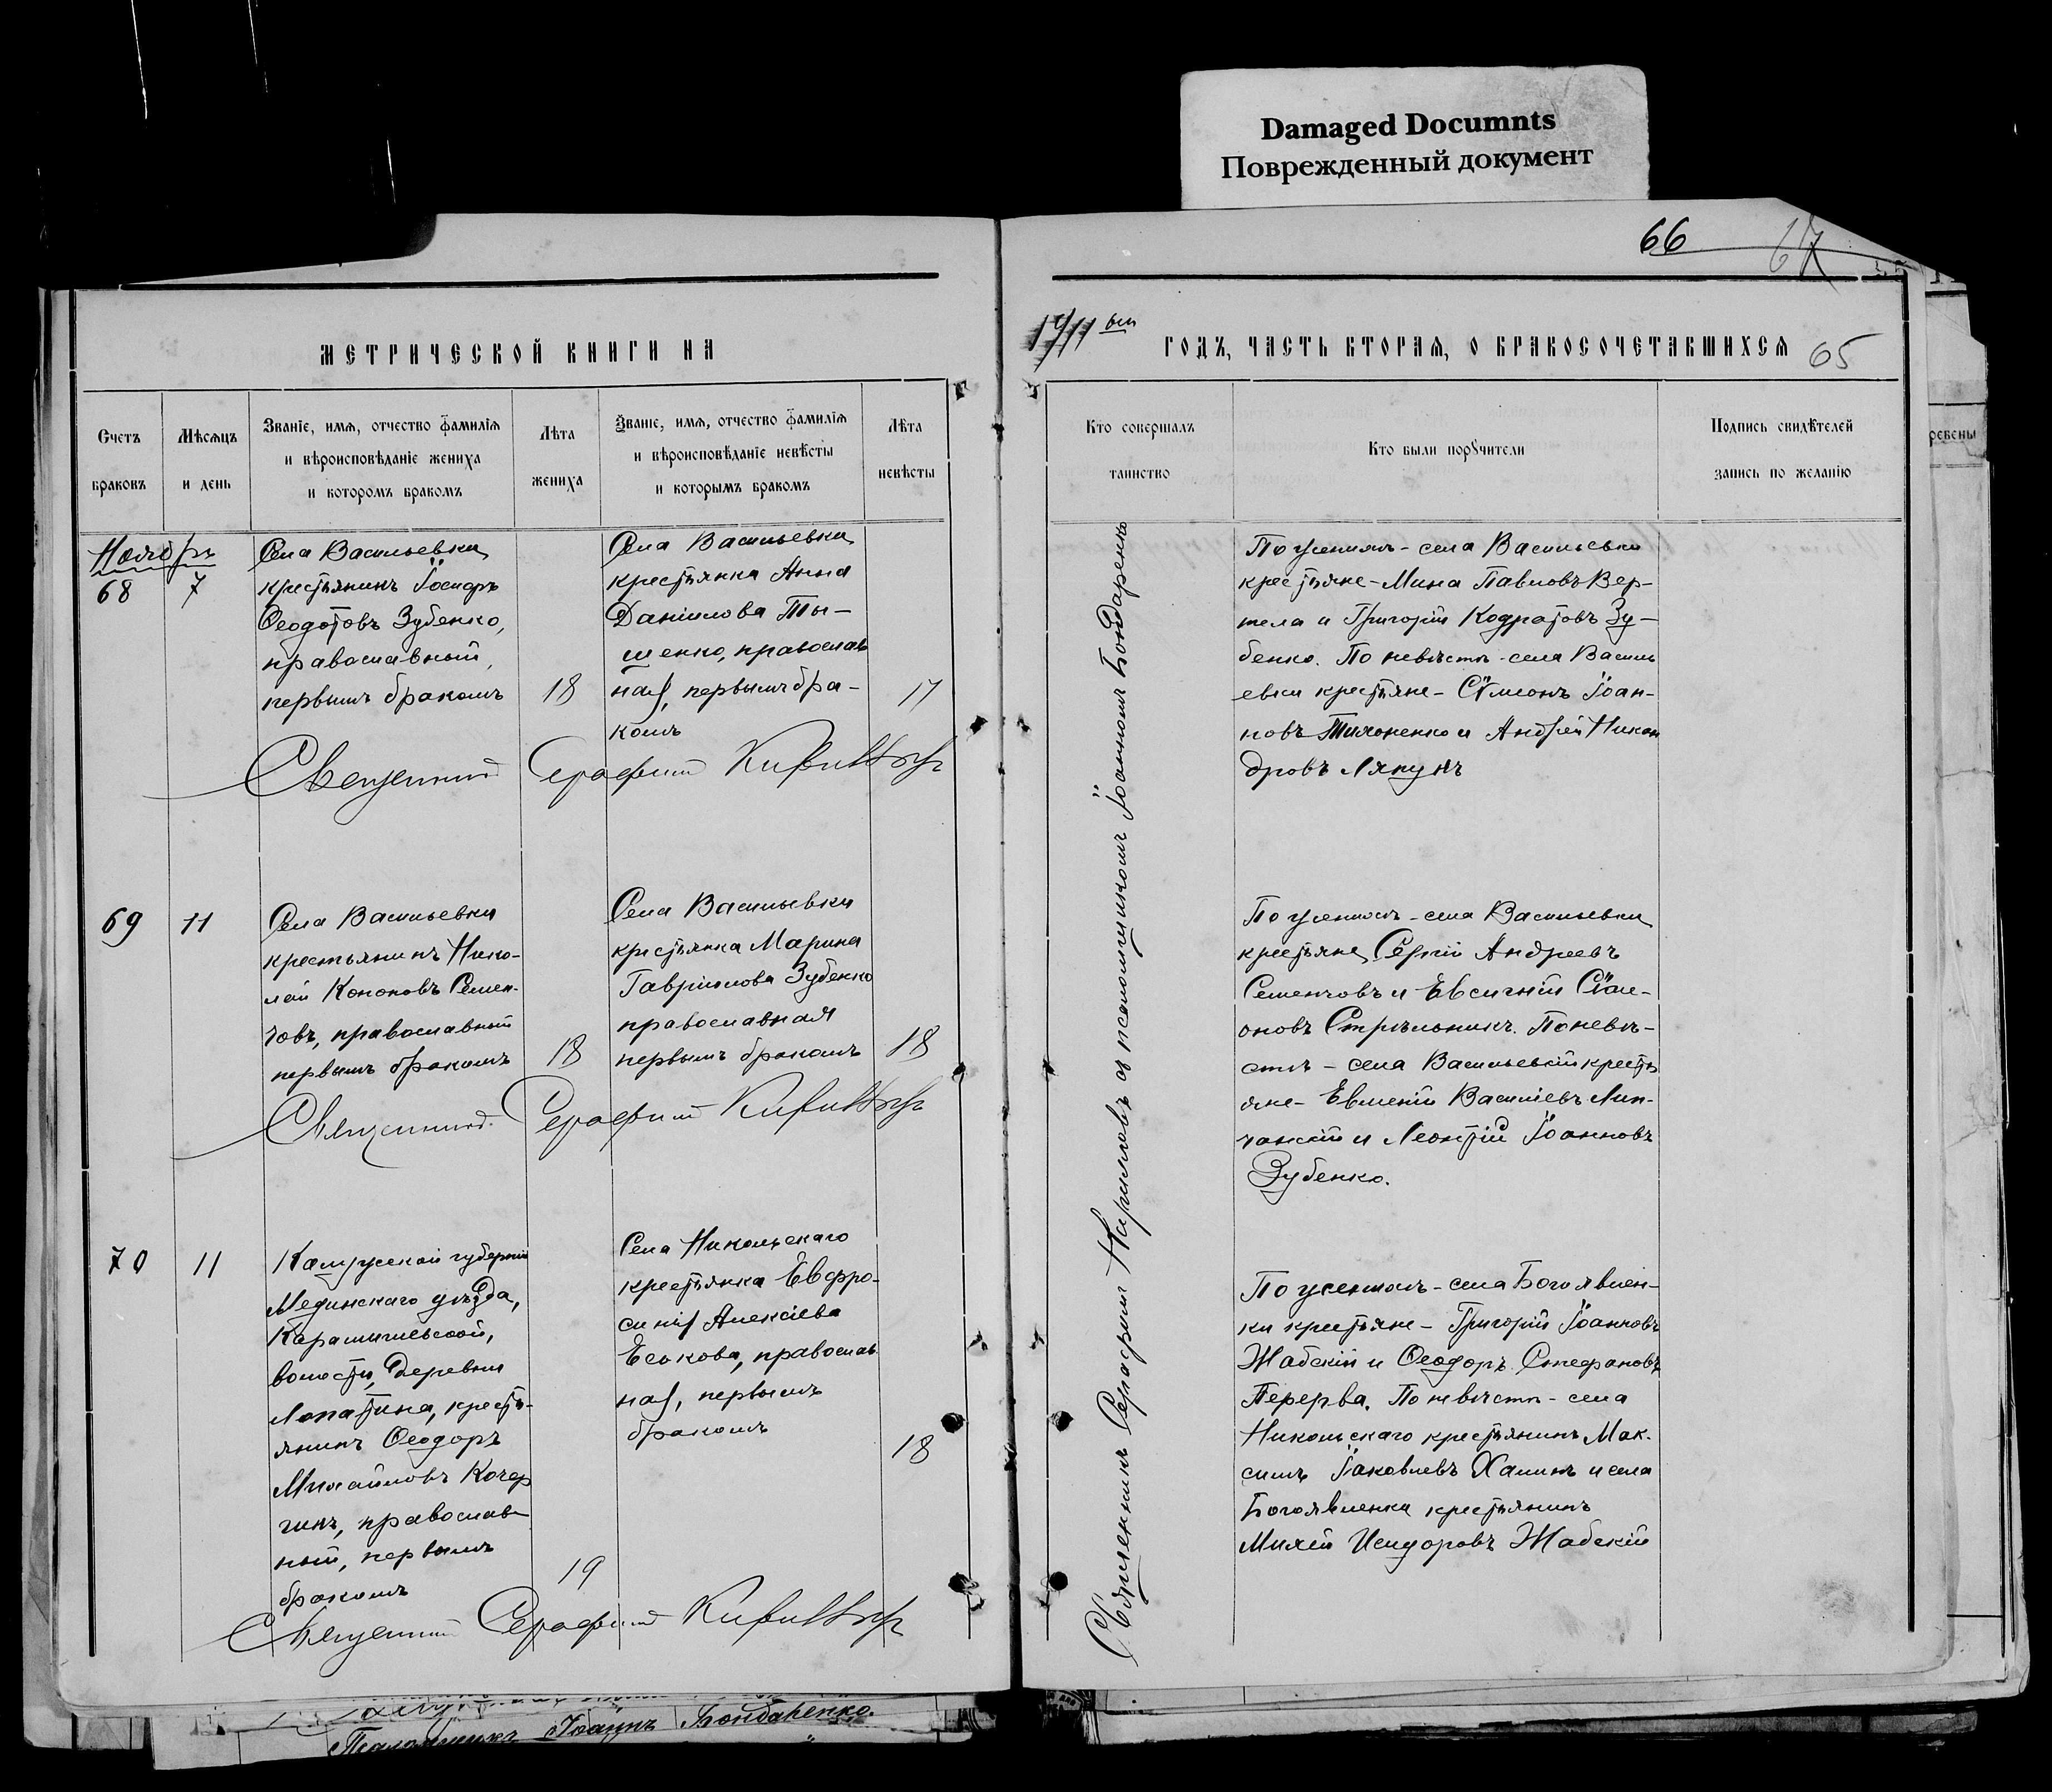 Damaged Documnts
Поврежденный документ
66
67
МЕТРИЧЕСКОЙ КНИГИ НА
1911 ый
ГОДЪ, ЧАСТЬ ВТОРАЯ, О БРАКОСОЧЕТАВШИХСЯ
65
Счетъ
браковъ
Мѣсяцъ
и день
Званіе, имя, отчество фамилія
и вѣроисповѣданіе жениха
и которомъ бракомъ
Лѣта
жениха
Званіе, имя, отчество фамилія
и вѣроисповѣданіе невѣсты
и которымъ бракомъ
Лѣта
невѣсты
Кто совершалъ
таинство
Кто были поручители
Подпись свидѣтелей
запись по желанію
ребены
Ноябрь
68
7
Села Васильевки
крестьянинъ
Ѳеодотовъ Зубенко,
православный,
первымъ бракомъ
18
Села Васильевки
крестьянка Анна
Даніилова Ты-
шенко, православ
ная, первымъ бра-
комъ
17
Священникъ Серафимъ
По женихѣ - села Васильевки
крестьяне - Мина Павловъ Вер-
тела и Григорій Кодратовъ Зу-
бенко. По невѣстѣ - села Василь
евки крестьяне - Сѵмеонъ Іоан-
новъ Тихоненко и Андрей Никан
дровъ Ляпунъ
69
11
Села Васильевки
крестьянинъ Нико-
лай Кононовъ Семен-
човъ, православный
первымъ бракомъ
18
Села Васильевки
крестьянка Марина
Гавріилова Зубенко
православная
первымъ бракомъ
18
Священникъ Серафимъ
По женихѣ - села Васильевки
крестьяне Сергій Андреевъ
Семенчовъ и Евсигній Сѵме-
оновъ Стрѣльникъ. По невѣ-
стѣ - села Васильевки кресть
яне - Евменій Василіевъ Лип-
чанскій и Леонтій Іоанновъ
Зубенко.
70
11
Калужской губерніи
Мединскаго уѣзда,
Карамышевской,
волости, деревни
Лопатина, кресть-
янинъ Ѳеодоръ
Михайловъ Кочер
гинъ, православ-
ный, первымъ
бракомъ
19
Села Никольскаго
крестьянка Евфро-
синія Алексіева
Еськова, православ
ная, первымъ
бракомъ
18
Священникъ Серафимъ
По женихѣ - села Богоявлен-
ки крестьяне - Григорій Іоанновъ
Жабскій и Ѳеодоръ Стефановъ
Перерва. По невѣстѣ - села
Никольскаго крестьянинъ Мак-
симъ Іаковлевъ Халинъ и села
Богоявленки крестьянинъ
Михей Исидоровъ Жабскій
Священникъ Серафимъ съ псаломщикомъ Іоанномъ Бондаренко
Псаломщикъ Іоаннъ Бондаренко.